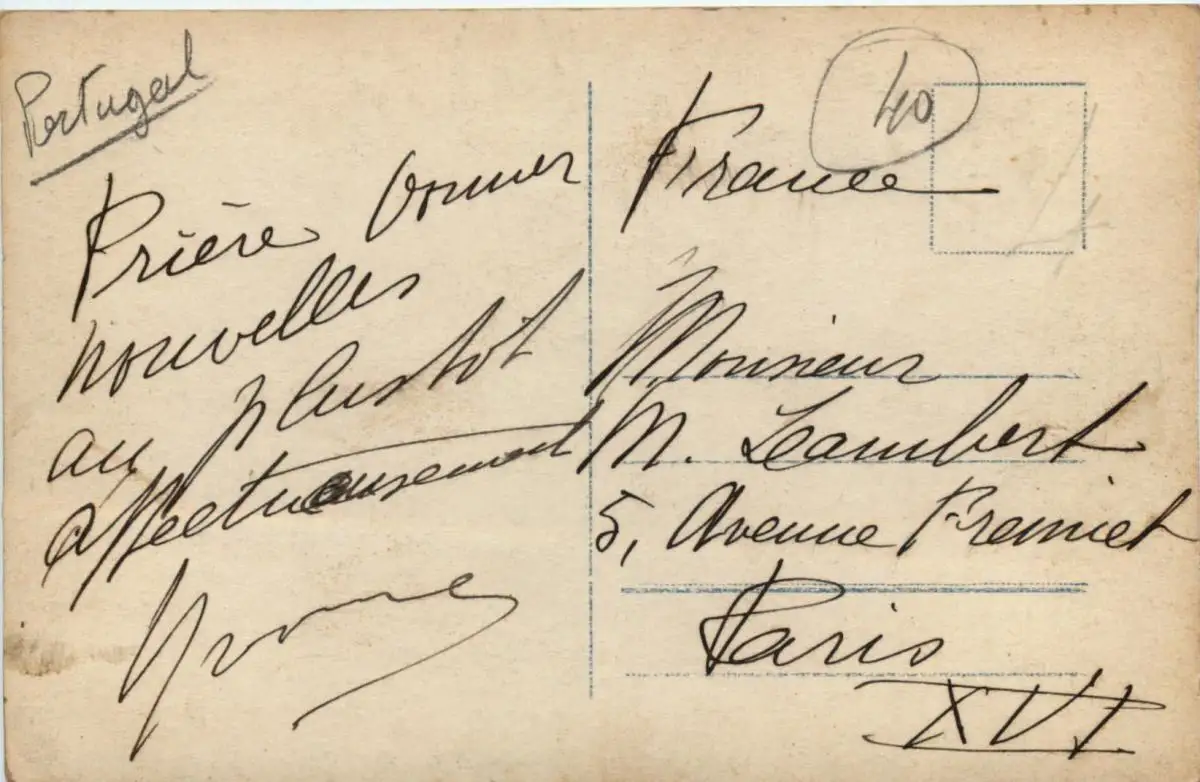 Portugal
Prière donner
nouvelles
au plustôt
affectueusement
Yvonne
40
France
Monsieur
M. Lambert
5, Avenue Fremiet
Paris
XVI